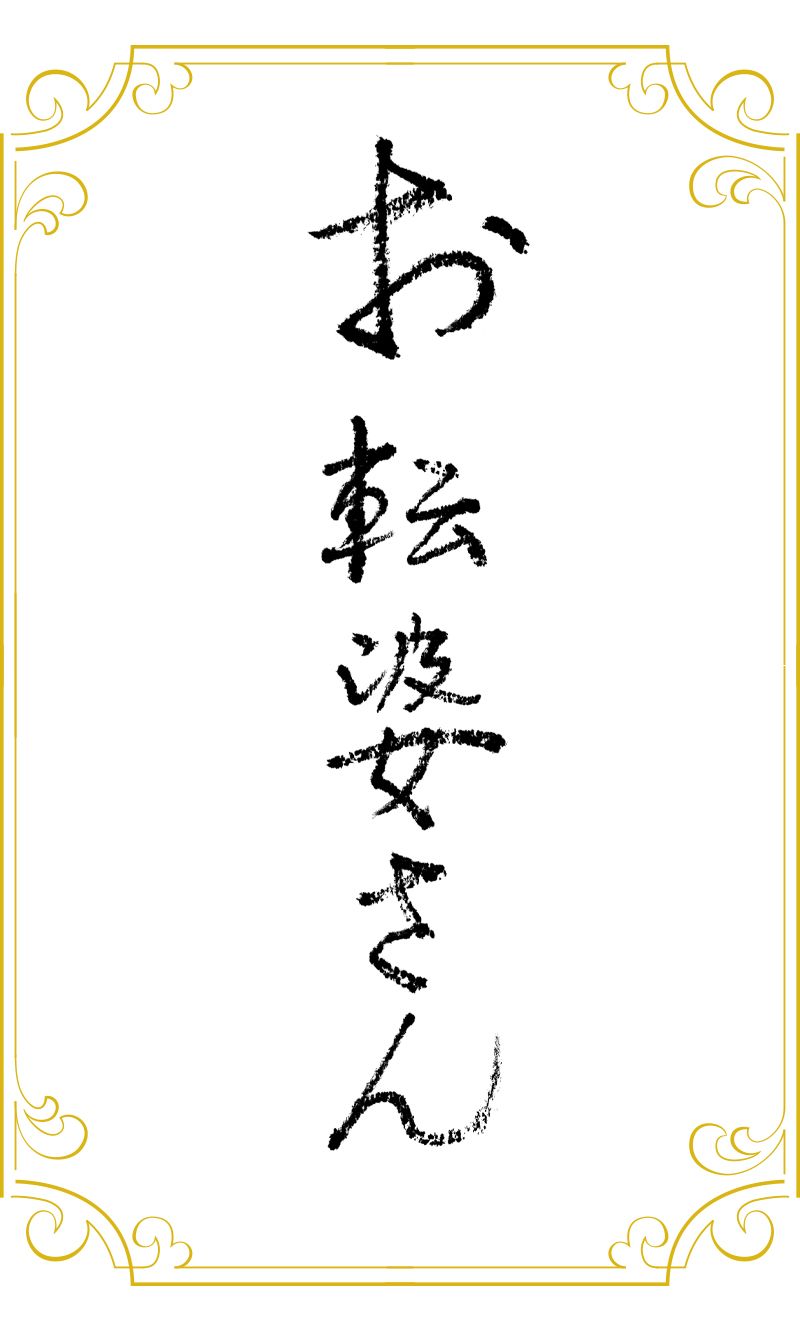 お転婆さん